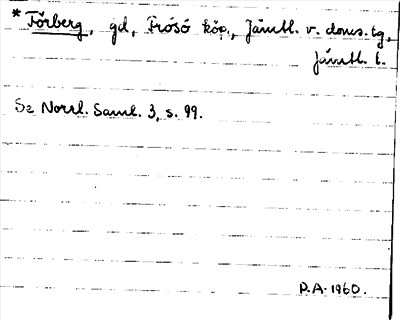 * Förberg, gd, Frösö köp., Jämtl. v. doms.tg,
Jämtl. l.
Se Norrl. Saml. 3, s. 99.
P.A. 1960.